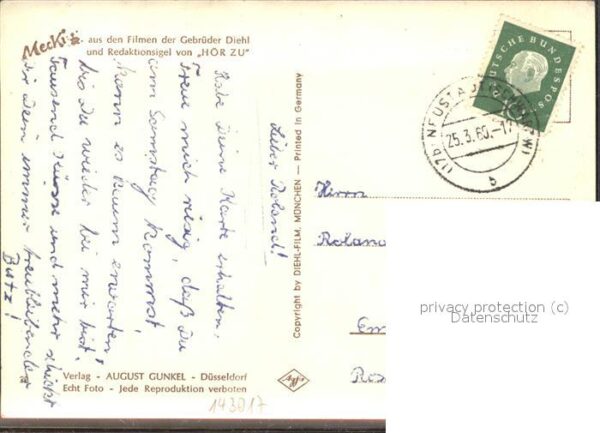 Mecki
aus den Filmen der Gebrüder Diehl
und Redaktionsigel von "HÖR ZU"
Lieber Roland!
Habe Deine Karte erhalten.
Freue mich riesig, daß Du
am Samstag kommst,
kann es kaum erwarten,
bis Du wieder bei mir bist.
Tausend Küsse und mehr schickt
Dir Dein immer treuliebender
Butz!
Copyright by DIEHL-FILM, MÜNCHEN — Printed in Germany
DEUTSCHE BUNDESPOST
(17b) NEUSTADT
25.3.60.-17
b
Herrn
Roland
privacy protection (c)
Datenschutz
Verlag - AUGUST GUNKEL - Düsseldorf
Echt Foto - Jede Reproduktion verboten
Agfa
143017